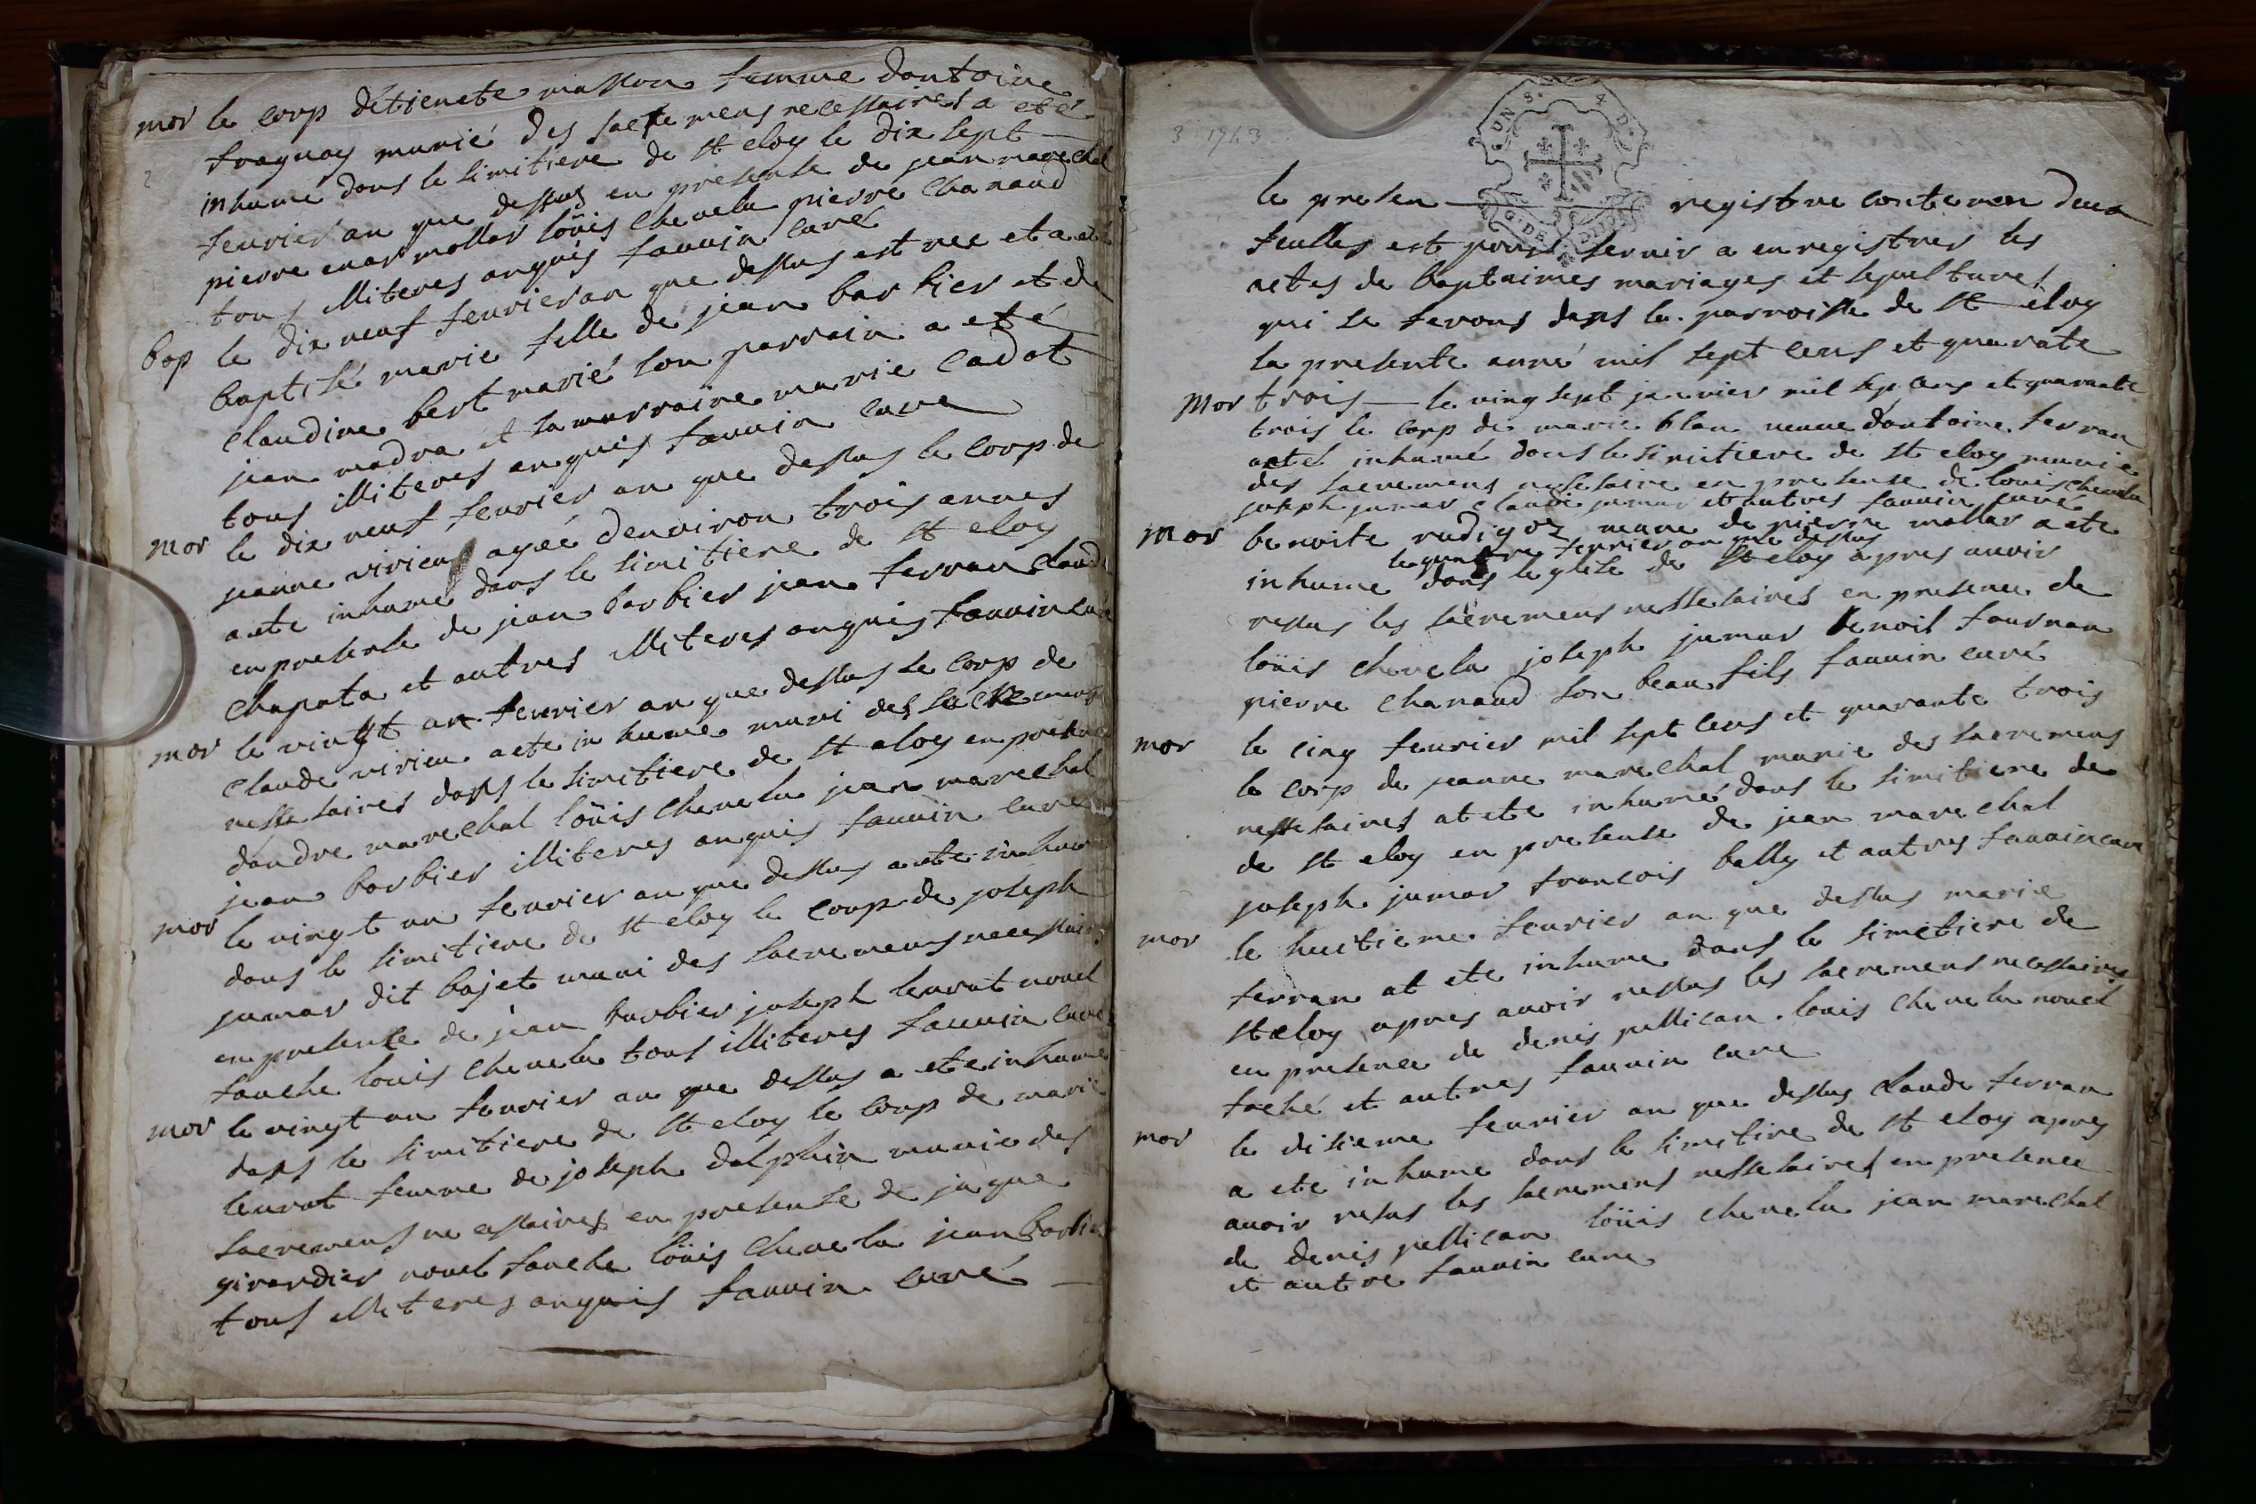 mor le corp détienete masson femme dantoine
fragnay munié des sacremens necessaires a eté
inhumé dans le simitiere de st eloy le dix sept
feurier an que dessus en presense de jean marechal
pierre mollar loüis chevelu pierre chanaud
tous illiteres anquis fauuin curé
bap le dix neuf feurier an que dessus est nee et a eté
baptisé marie fille de jean barbier et de
claudine bert marié son parrain a eté
jean madra et sa marraine marie cadot
tous illiteres anquis fauuin cure
mor le dix neuf feurier an que dessus le corp de
jeanne virieu agéé denuiron trois annes
a ete inhume dans le simitiere de st eloy
en presense de jean barbier jean ferran claude
chapata et autres illiteres anquis fauuin curé
mor le vingt un feurier an que dessus le corp de
claude virieu a ete in hume muni des sacremens
nessesaires dans le simitiere de st eloy en presense
dandre marechal loüis chevelu jean marechal
jean barbier illiteres anquis fauuin cure
mor le vingt un feurier an que dessus a ete inhume
dans le simitiere de st eloy le corp de joseph
jumar dit bajet muni des sacremens necessaires
en presense de jean barbier joseph leurat nouel
fauche louis chevelu tous illiteres fauuin cure
mor le vingt un feurier an que dessus a ete inhume
dans le simitiere de st eloy le corp de marie
leurat femme de joseph dalphin munie des
sacremens necessaires en presense de jaque
girardier nouel fauche loüis chevelu jean barbier
tous illiteres anquis fauuin curé
3 1743
le presen registre contenan deux
feulles est pour seruir a enregistrer les
actes de baptaimes mariages et sepultures
qui se ferons dans la parroisse de st eloy
la presente anné mil sept cens et quarate
Mor trois le ving sept januier mil sep cens et quarante
trois le corp de marie blan veuue dantoine ferran
a eté inhumé dans le simitiere de st eloy munie
des sacremens nesesaire en presense de louis chevelu
joseph jumar claude jumar et autres fauuin curé
mor benoite rudigoz veuue de pierre mollar a ete
le quatre feurier an que dessus
inhume dans leglise de st eloy apres auoir
ressus les sacremens nessesaires en presence de
loüis chevelu joseph jumar benoit fournan
pierre chanaud son beau fils fauuin curé
mor le cinq feurier mil sept cens et quarante trois
le corp de jeanne marechal munie des sacremens
nessesaires at ete inhumé dans le simitiere de
de st eloy en presense de jean marechal
joseph jumar francois bally et autres fauuin cure
mor le huitieme feurier an que dessus marie
ferran at ete inhume dans le simetiere de
st eloy apres auoir ressus les sacremens necessaires
en presence de denis pellican louis chevelu nouel
foché et autres fauuin cure
mor le disieme feurier an que dessus claude ferran
a ete inhume dans le simitire de st eloy apres
auoir resus les sacremens nessesaires en presence
de denis pellican loüis chevelu jean marechal
et autre fauuin cure